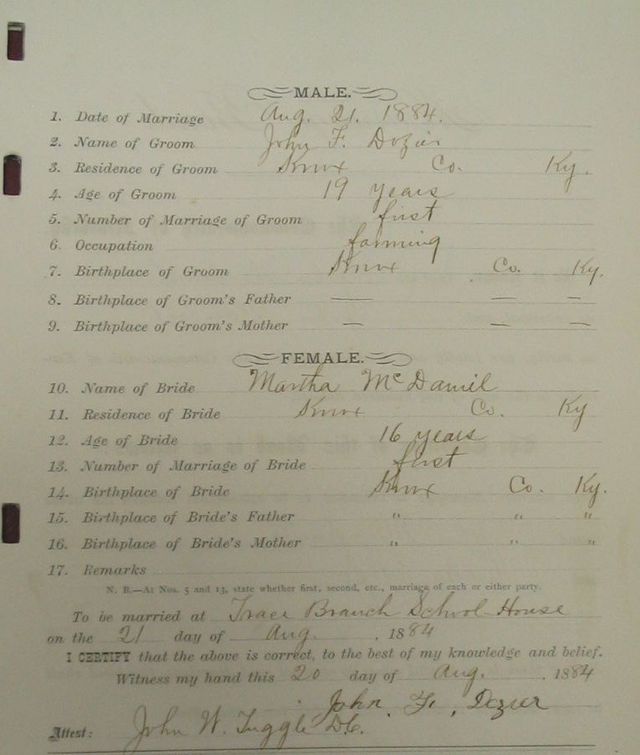 MALE.
1. Date of Marriage Aug. 21. 1884.
2. Name of Groom John F. Dozier
3. Residence of Groom Knox Co. Ky.
4. Age of Groom 19 years
5. Number of Marriage of Groom first
6. Occupation farming
7. Birthplace of Groom Knox Co. Ky.
8. Birthplace of Groom's Father — — —
9. Birthplace of Groom's Mother — — —
FEMALE.
10. Name of Bride Martha McDaniel
11. Residence of Bride Knox Co. Ky
12. Age of Bride 16 years
13. Number of Marriage of Bride first
14. Birthplace of Bride Knox Co. Ky.
15. Birthplace of Bride's Father " " "
16. Birthplace of Bride's Mother " " "
17. Remarks
N. B.—At Nos. 5 and 13, state whether first, second, etc., marriage of each or either party.
To be married at Trace Branch School House
on the 21 day of Aug. , 1884
I CERTIFY that the above is correct, to the best of my knowledge and belief.
Witness my hand this 20 day of Aug. , 1884
John F. Dozier
Attest: John W. Tuggle D.C.